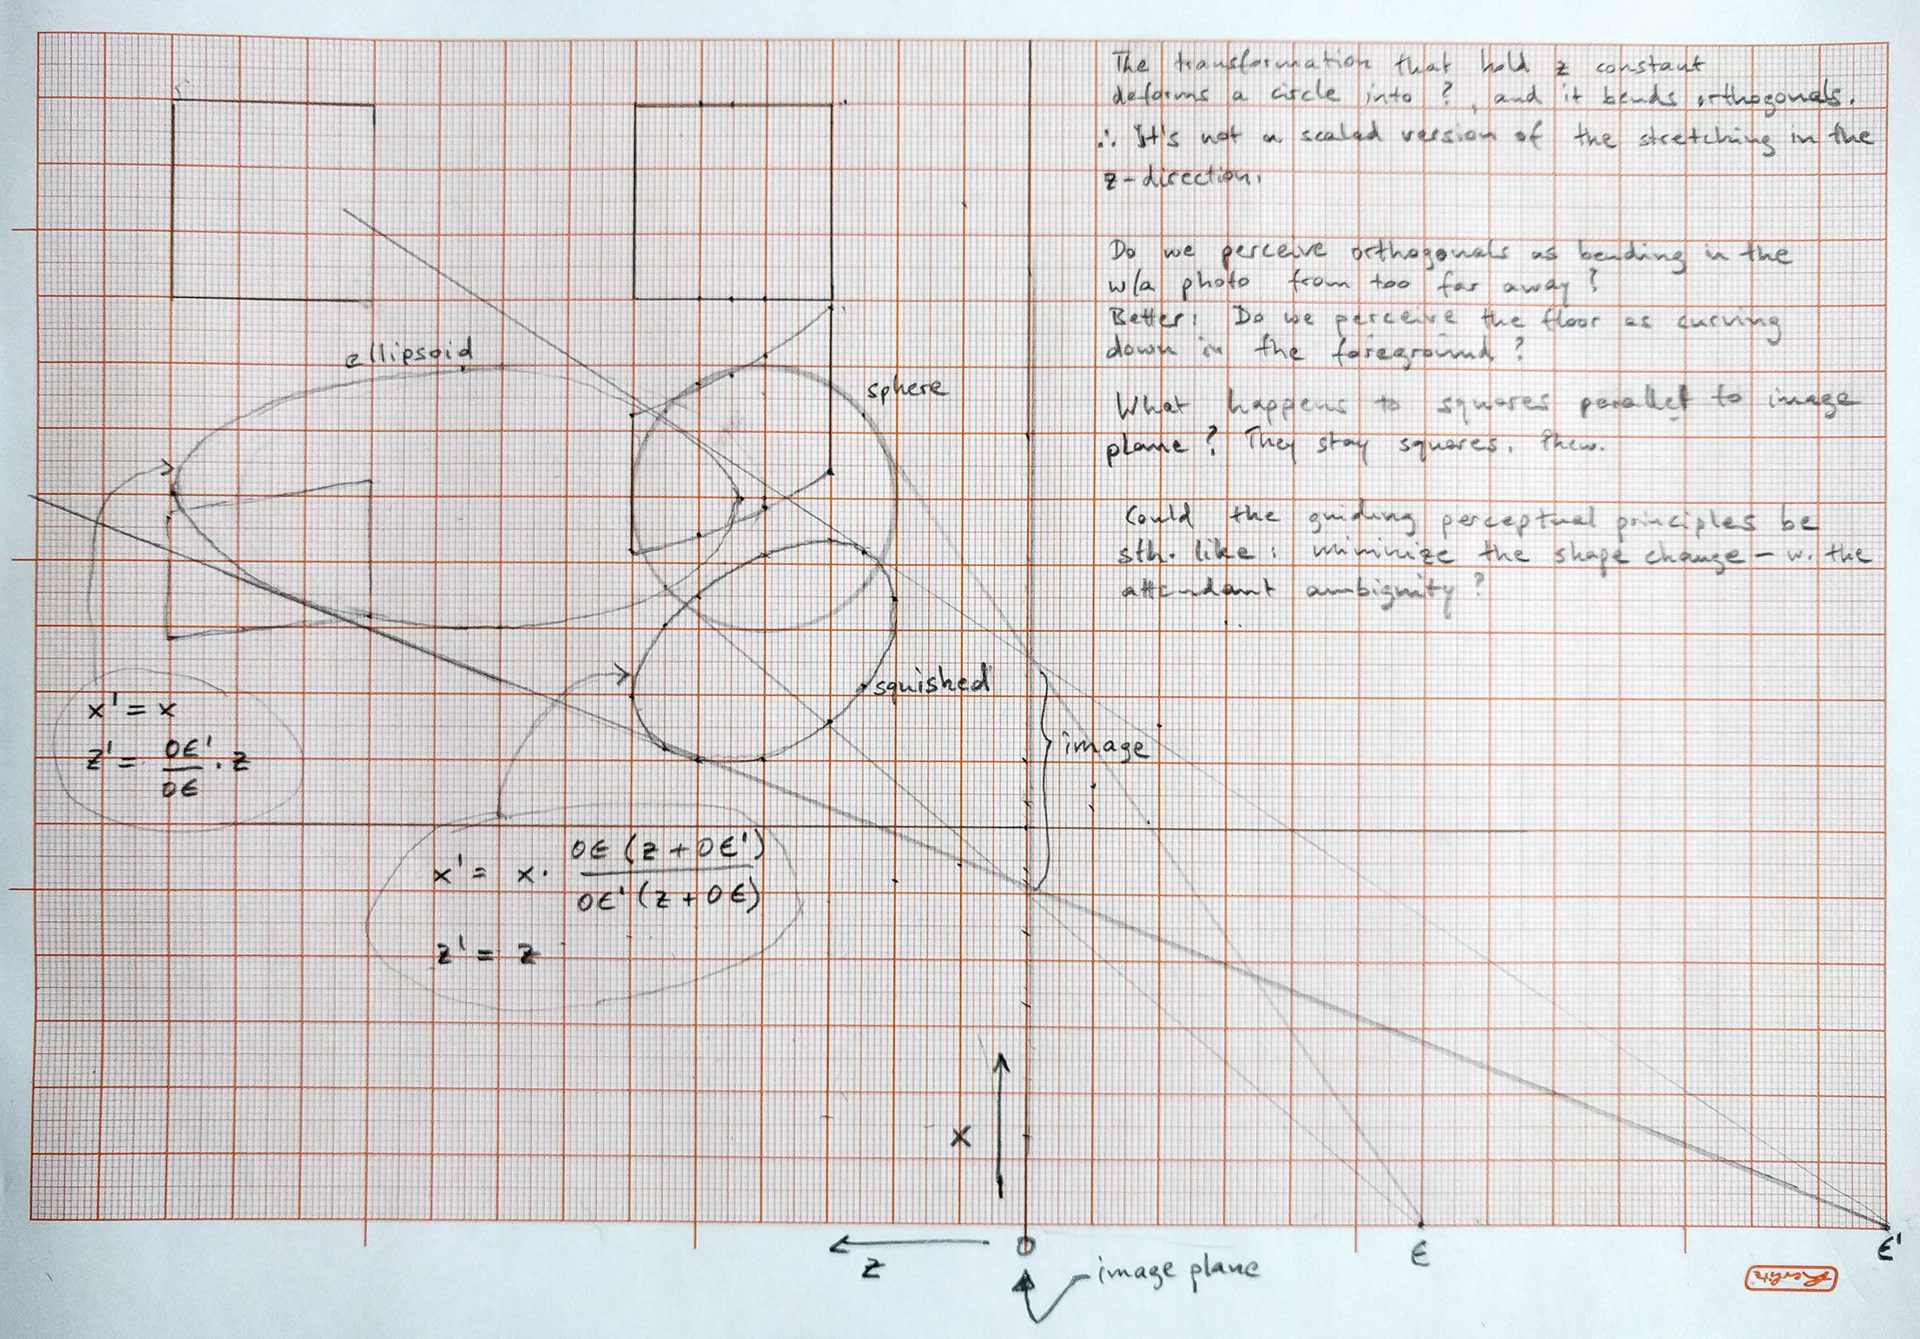 The transformation that hold z constant
deforms a circle into ?, and it bends orthogonals.
∴ It's not a scaled version of the stretching in the
z-direction.
Do we perceive orthogonals as bending in the
w/a photo from too far away?
Better: Do we perceive the floor as curving
down in the foreground?
What happens to squares parallel to image
plane? They stay squares. Phew.
Could the guiding perceptual principles be
sth. like: minimize the shape change – w. the
attendant ambiguity?
ellipsoid
sphere
squished
image
x' = x
z' = OE'/OE · z
x' = x · OE (z + OE') / OE' (z + OE)
z' = z
x
z
O
E
E'
image plane